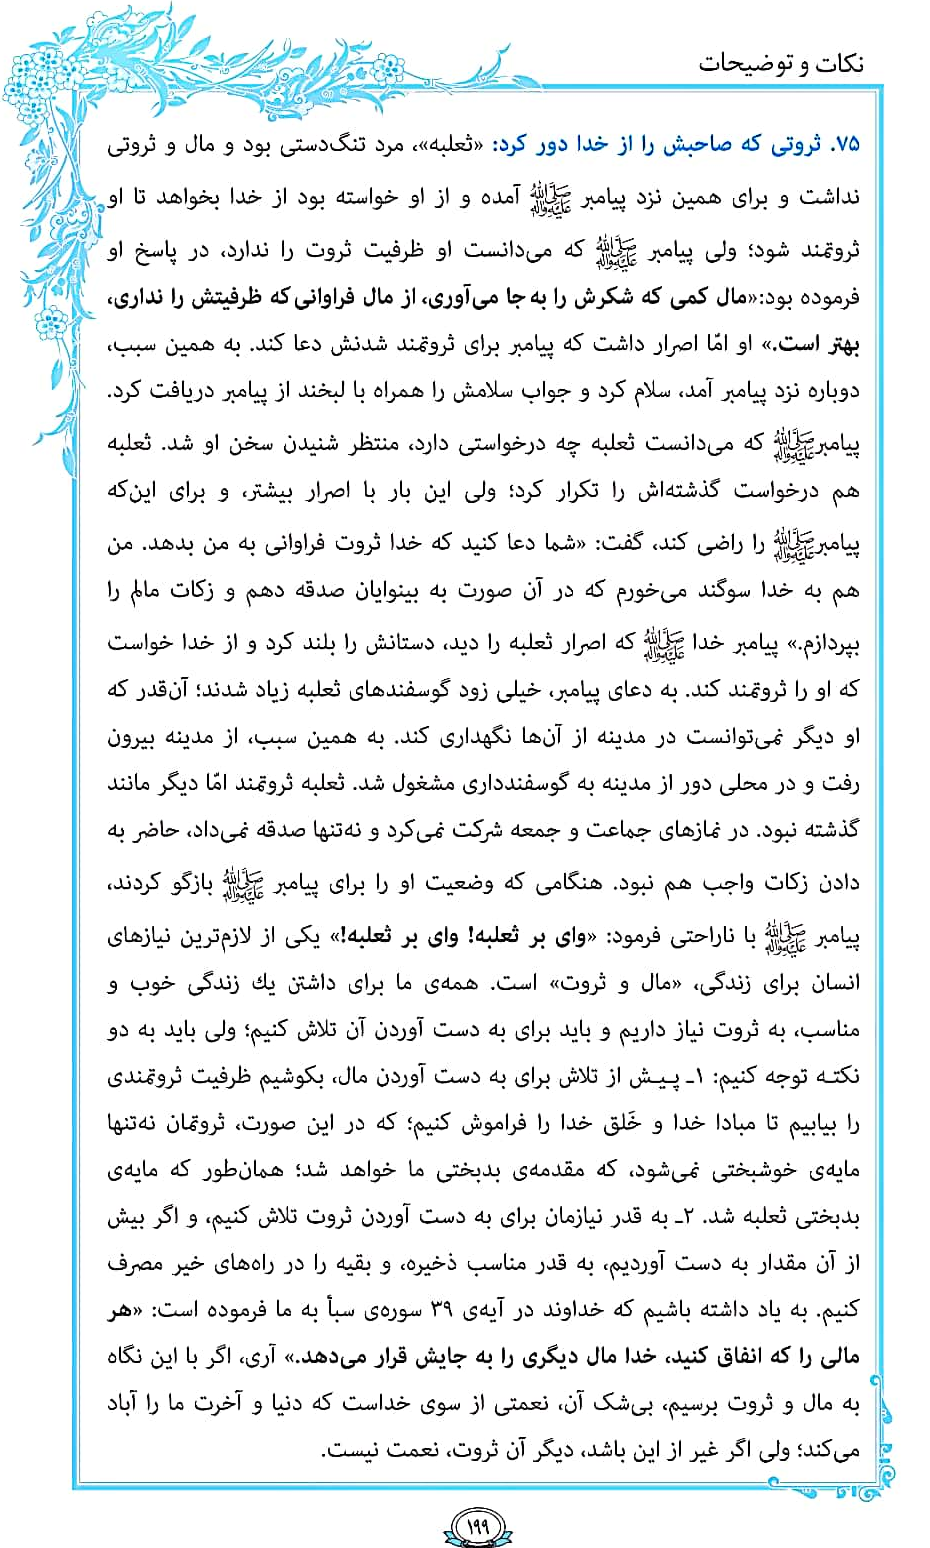 نکات و توضیحات
۷۵. ثروتی که صاحبش را از خدا دور کرد: «ثعلبه»، مرد تنگ‌دستی بود و مال و ثروتی
نداشت و برای همین نزد پیامبر ﷺ آمده و از او خواسته بود از خدا بخواهد تا او
ثروتمند شود؛ ولی پیامبر ﷺ که می‌دانست او ظرفیت ثروت را ندارد، در پاسخ او
فرموده بود:«مال کمی که شکرش را به‌جا می‌آوری، از مال فراوانی که ظرفیتش را نداری،
بهتر است.» او امّا اصرار داشت که پیامبر برای ثروتمند شدنش دعا کند. به همین سبب،
دوباره نزد پیامبر آمد، سلام کرد و جواب سلامش را همراه با لبخند از پیامبر دریافت کرد.
پیامبرﷺ که می‌دانست ثعلبه چه درخواستی دارد، منتظر شنیدن سخن او شد. ثعلبه
هم درخواست گذشته‌اش را تکرار کرد؛ ولی این بار با اصرار بیشتر، و برای این‌که
پیامبرﷺ را راضی کند، گفت: «شما دعا کنید که خدا ثروت فراوانی به من بدهد. من
هم به خدا سوگند می‌خورم که در آن صورت به بینوایان صدقه دهم و زکات مالم را
بپردازم.» پیامبر خدا ﷺ که اصرار ثعلبه را دید، دستانش را بلند کرد و از خدا خواست
که او را ثروتمند کند. به دعای پیامبر، خیلی زود گوسفندهای ثعلبه زیاد شدند؛ آن‌قدر که
او دیگر نمی‌توانست در مدینه از آن‌ها نگهداری کند. به همین سبب، از مدینه بیرون
رفت و در محلی دور از مدینه به گوسفندداری مشغول شد. ثعلبه ثروتمند امّا دیگر مانند
گذشته نبود. در نمازهای جماعت و جمعه شرکت نمی‌کرد و نه‌تنها صدقه نمی‌داد، حاضر به
دادن زکات واجب هم نبود. هنگامی که وضعیت او را برای پیامبر ﷺ بازگو کردند،
پیامبر ﷺ با ناراحتی فرمود: «وای بر ثعلبه! وای بر ثعلبه!» یکی از لازم‌ترین نیازهای
انسان برای زندگی، «مال و ثروت» است. همه‌ی ما برای داشتن یك زندگی خوب و
مناسب، به ثروت نیاز داریم و باید برای به دست آوردن آن تلاش کنیم؛ ولی باید به دو
نکته توجه کنیم: ۱ـ پیش از تلاش برای به دست آوردن مال، بکوشیم ظرفیت ثروتمندی
را بیابیم تا مبادا خدا و خَلق خدا را فراموش کنیم؛ که در این صورت، ثروتمان نه‌تنها
مایه‌ی خوشبختی نمی‌شود، که مقدمه‌ی بدبختی ما خواهد شد؛ همان‌طور که مایه‌ی
بدبختی ثعلبه شد. ۲ـ به قدر نیازمان برای به دست آوردن ثروت تلاش کنیم، و اگر بیش
از آن مقدار به دست آوردیم، به قدر مناسب ذخیره، و بقیه را در راه‌های خیر مصرف
کنیم. به یاد داشته باشیم که خداوند در آیه‌ی ۳۹ سوره‌ی سبأ به ما فرموده است: «هر
مالی را که انفاق کنید، خدا مال دیگری را به جایش قرار می‌دهد.» آری، اگر با این نگاه
به مال و ثروت برسیم، بی‌شک آن، نعمتی از سوی خداست که دنیا و آخرت ما را آباد
می‌کند؛ ولی اگر غیر از این باشد، دیگر آن ثروت، نعمت نیست.
۱۹۹